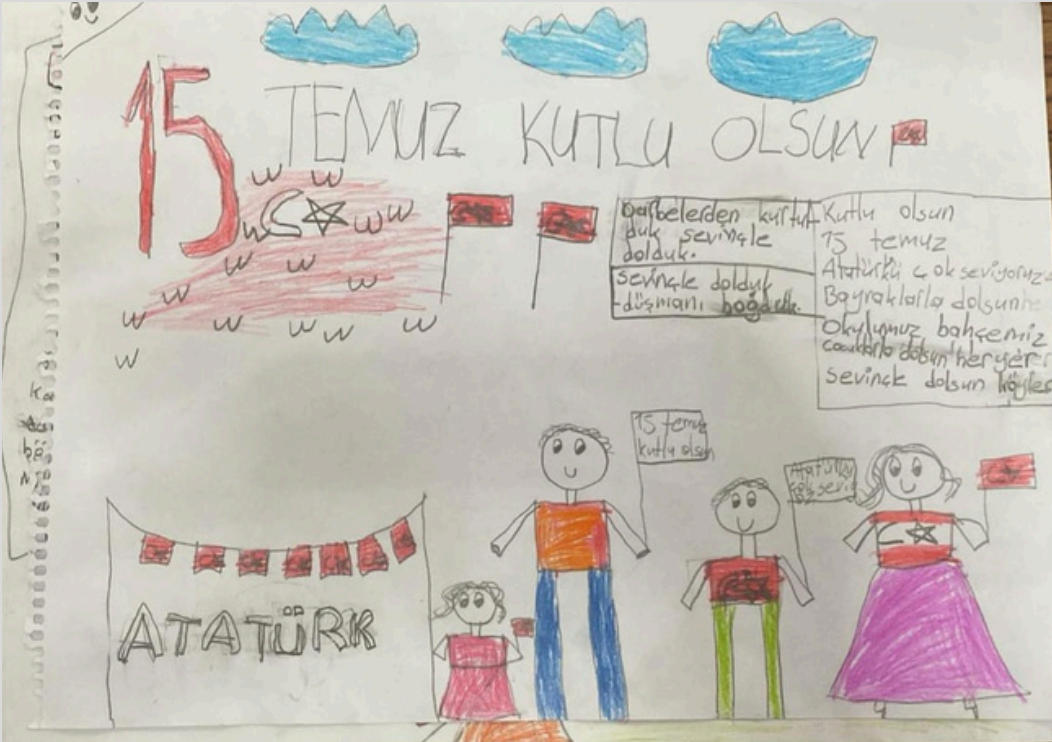 15 TEMUZ KUTLU OLSUN
Darbelerden kurtul-
duk sevinçle
dolduk.
sevinçle dolduk
düşmanı boğduk.
Kutlu olsun
15 temuz
Atatürkü çok seviyoruz
Bayraklarla dolsun
Okulumuz bahçemiz
Çocuklarla dolsun her yer
sevinçle dolsun köyler
15 temuz
kutlu olsun
Atatürkü
çok
ATATÜRK